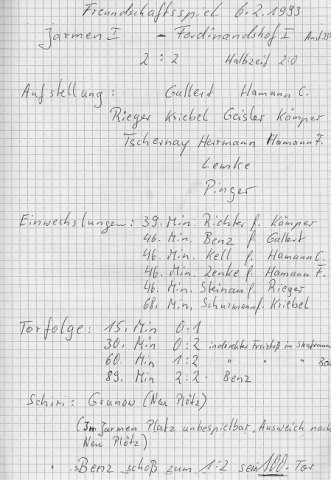 Freundschaftsspiel 6.2.1993
Jarmen I - Ferdinandshof I
2 : 2 Halbzeit 2:0
Aufstellung: Gallert Hamann C.
Rieger Kriebel Geisler Kämper
Tschernay Herrmann Hamann F.
Lemke
Pinger
Einwechslungen: 39. Min. Richter f. Kämper
46. Min. Benz f. Gallert
46. Min. Kell f. Hamann C.
46. Min. Zenke f. Hamann F.
46. Min. Steinau f. Rieger
68. Min. Schurmann f. Kriebel
Torfolge: 15. Min 0:1
30. Min 0:2 indirekter Freistoß im
60. Min 1:2 " " " Benz
89. Min 2:2 · Benz
Schiri: Grunow (Neu Plötz)
(Im Jarmen Platz unbespielbar, Ausweich nach
Neu Plötz)
Benz schoß zum 1:2 sein 100. Tor